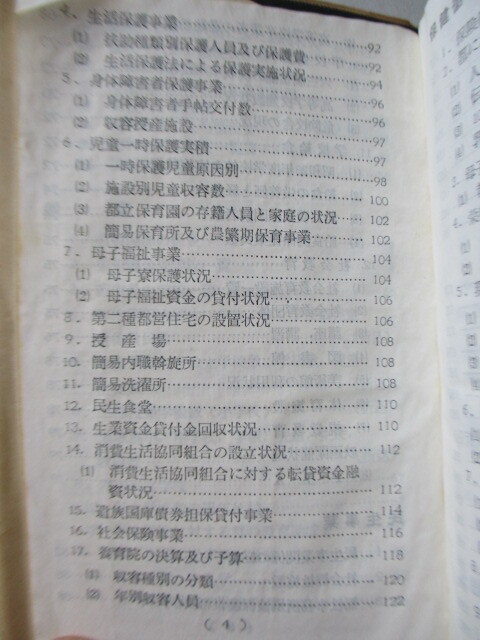 4. 生活保護事業……92
(1) 扶助種類別保護人員及び保護費……92
(2) 生活保護法による保護実施状況……94
5. 身体障害者保護事業……96
(1) 身体障害者手帖交付数……96
(2) 収容授産施設……97
6. 児童一時保護実積……97
(1) 一時保護児童原因別……98
(2) 施設別児童収容数……100
(3) 都立保育園の存籍人員と家庭の状況……102
(4) 簡易保育所及び農繁期保育事業……102
7. 母子福祉事業……104
(1) 母子寮保護状況……104
(2) 母子福祉資金の貸付状況……106
8. 第二種都営住宅の設置状況……106
9. 授産場……108
10. 簡易内職斡旋所……108
11. 簡易洗濯所……108
12. 民生食堂……110
13. 生業資金貸付金回収状況……110
14. 消費生活協同組合の設立状況……112
(1) 消費生活協同組合に対する転貸資金融
資状況……112
15. 遺族国庫債券担保貸付事業……114
16. 社会保険事業……116
17. 養育院の決算及び予算……118
(1) 収容種別の分類……120
(2) 年別収容人員……122
( 4 )